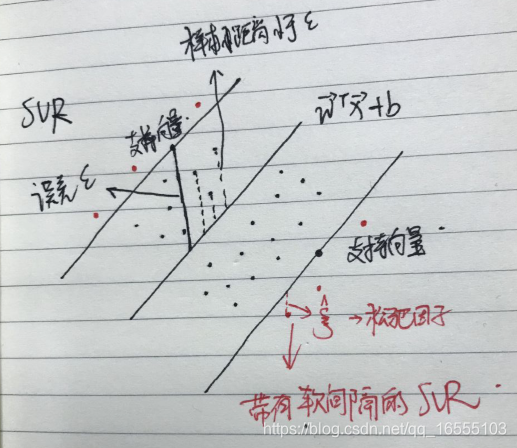 样本距离小于 ε
SVR
支持向量
w^T x + b
误差 ε
支持向量
ξ̂ → 松弛因子
带有软间隔的 SVR
https://blog.csdn.net/qq_16555103